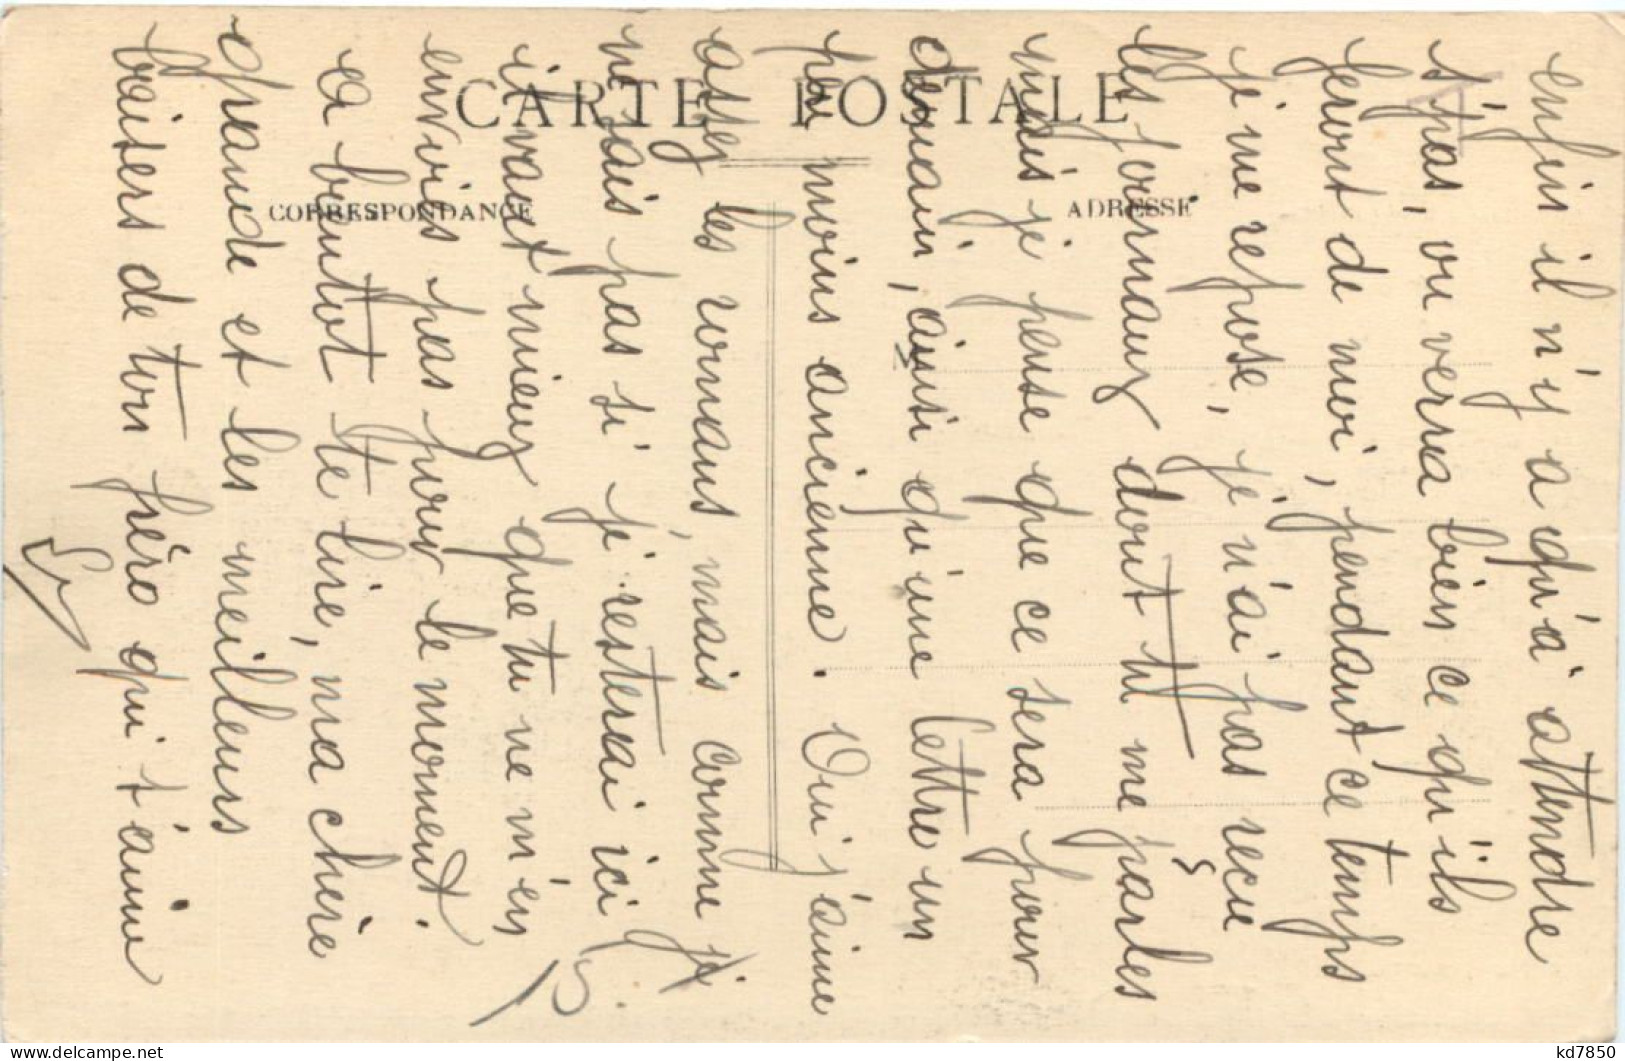 CARTE POSTALE
CORRESPONDANCE
ADRESSE
M
enfin il n'y a qu'à attendre
s'pas, ou verra bien ce qu'ils
feront de moi, pendant ce temps
je me repose, je n'ai pas recu
les journaux dont tu me parles
mais je pense que ce sera pour
demain, ainsi qu'une lettre un
peu moins ancienne. Oui j'aime
assez les romans, mais comme je
ne sais pas si je resterai ici
il vaut mieux que tu ne m'en
envoies pas pour le moment.
A bientot te lire, ma chère
grande et les meilleurs
baisers de ton frèro qui t'aime
kd7850